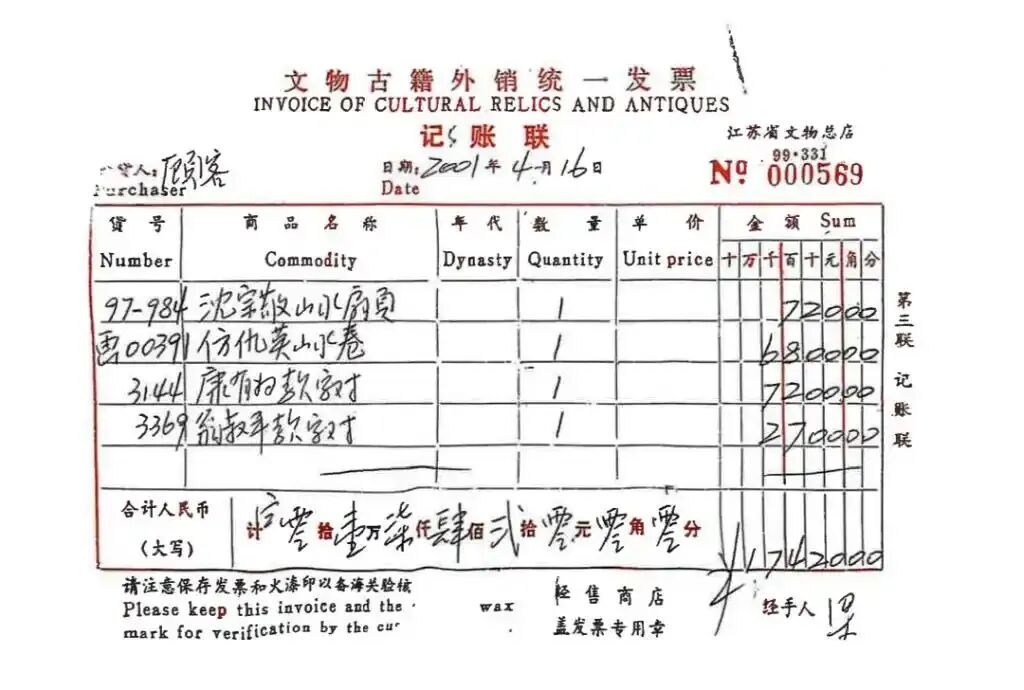 文物古籍外销统一发票
INVOICE OF CULTURAL RELICS AND ANTIQUES
记账联
江苏省文物总店
99·331
货人:顾客
Purchaser
日期:2001年4月16日
Date
Nº 000569
货号 商品名称 年代 数量 单价 金额 Sum
Number Commodity Dynasty Quantity Unit price 十万千百十元角分
97-984 沈宗敬山水扇页 1 72000
画00391 仿仇英山水卷 1 680000
3144 康有为款字对 1 720000
3369 翁叔平款字对 1 270000
第三联 记账联
合计人民币
(大写)
计 零拾壹万柒仟肆佰贰拾零元零角零分 ¥1742000
请注意保存发票和火漆印以备海关验核
Please keep this invoice and the wax
mark for verification by the cu
经售商店
盖发票专用章
经手人